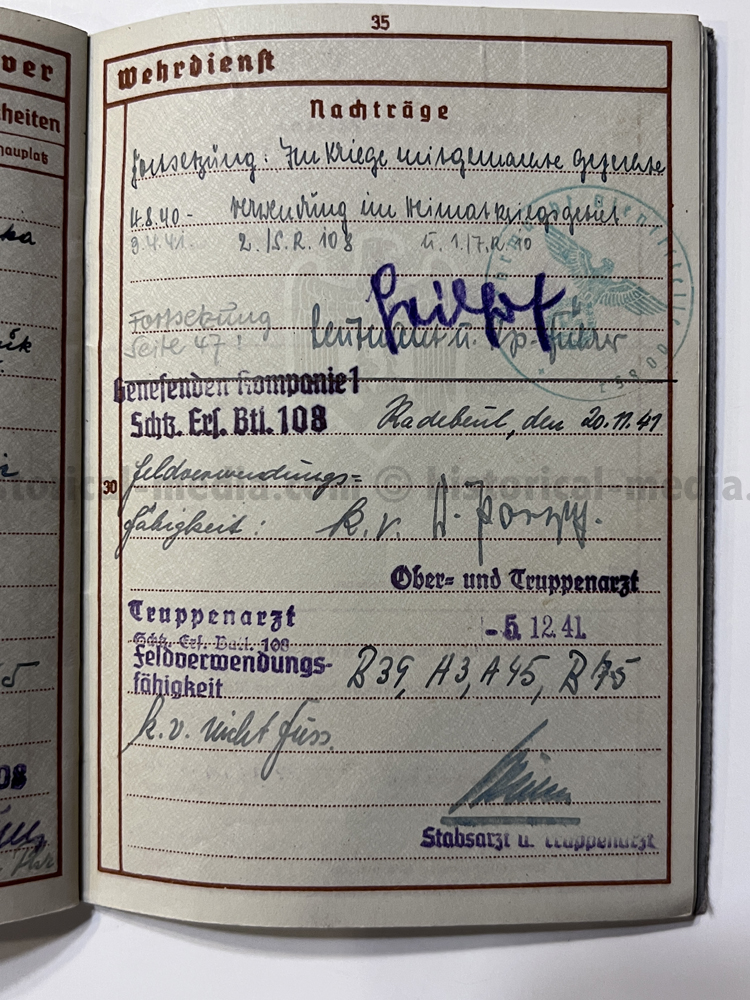 35
ver
Wehrdienst
heiten
Nachträge
hauplatz
Fortsetzung: Im Kriege mitgemachte Gefechte
4.8.40 - Verwendung im Heimatkriegsgebiet
9.4.41. 2./S.R. 108 u. 1./J.R. 10
Fortsetzung
Seite 47!
Leutnant u. Kp.-Führer
Genesenden Kompanie 1
Schtz. Ers. Btl. 108 Radebeul, den 20.11.41
historical-media.com © historical-media.
30 Feldverwendungs=
fähigkeit: k.v.
Ober- und Truppenarzt
Truppenarzt
- 5. 12. 41.
Schtz. Ers. Batl. 108
Feldverwendungs-
fähigkeit B 39, A 3, A 45, B 75
k.v. nicht Fuss.
08
Stabsarzt u. Truppenarzt